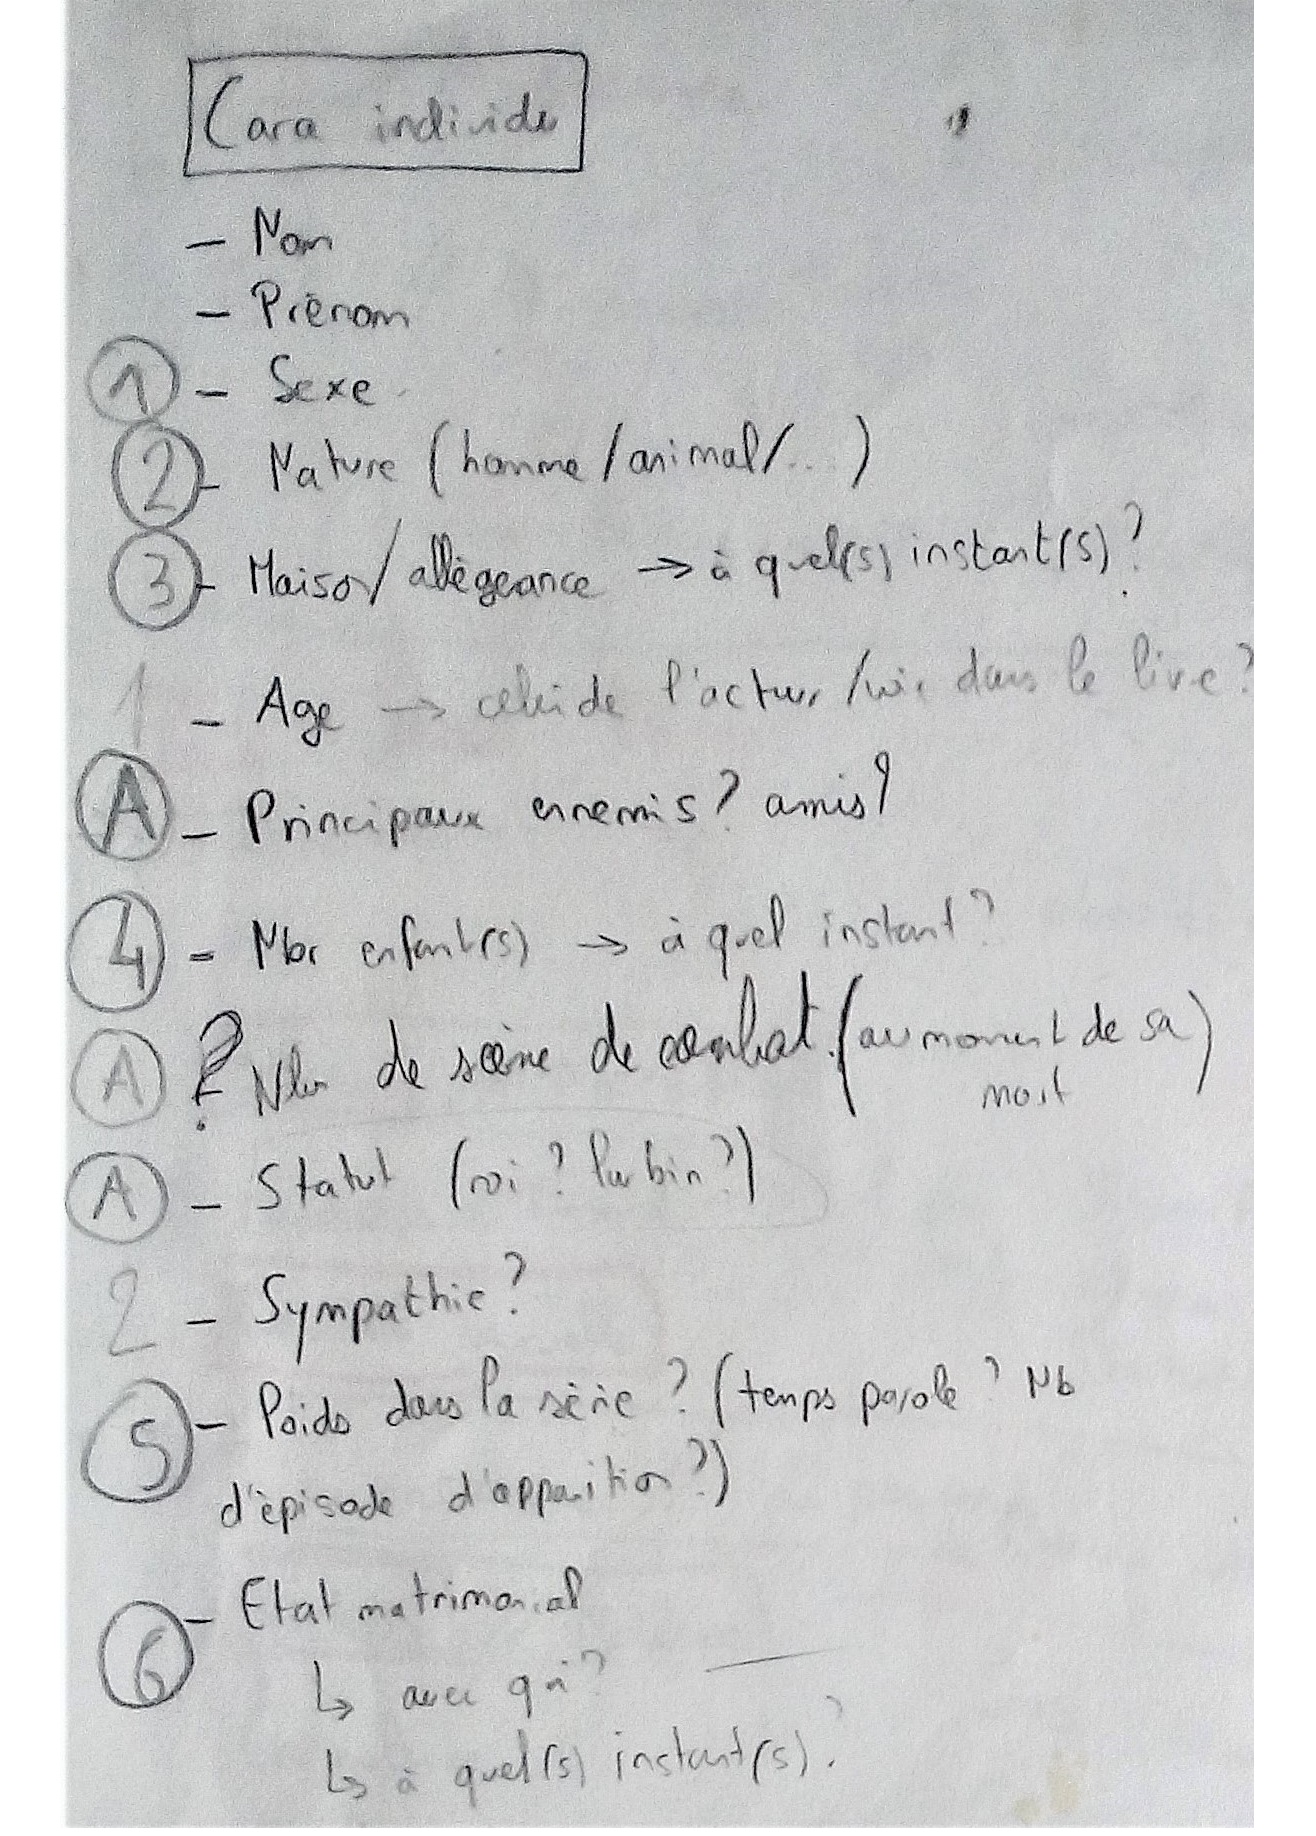 Cara individu
- Nom
- Prénom
1 - Sexe
2 - Nature (homme/animal/...)
3 - Maison/allégeance → à quel(s) instant(s)?
1 - Age → celui de l'acteur / dans le livre?
A - Principaux ennemis? amis?
4 - Nbr enfant(s) → à quel instant?
A ? Nbr de scène de combat. (au moment de sa
mort)
A - Statut (roi? larbin?)
2 - Sympathie?
5 - Poids dans la série? (temps parole? Nb
d'épisode d'apparition?)
6 - Etat matrimonial
↳ avec qui?
↳ à quel(s) instant(s)?